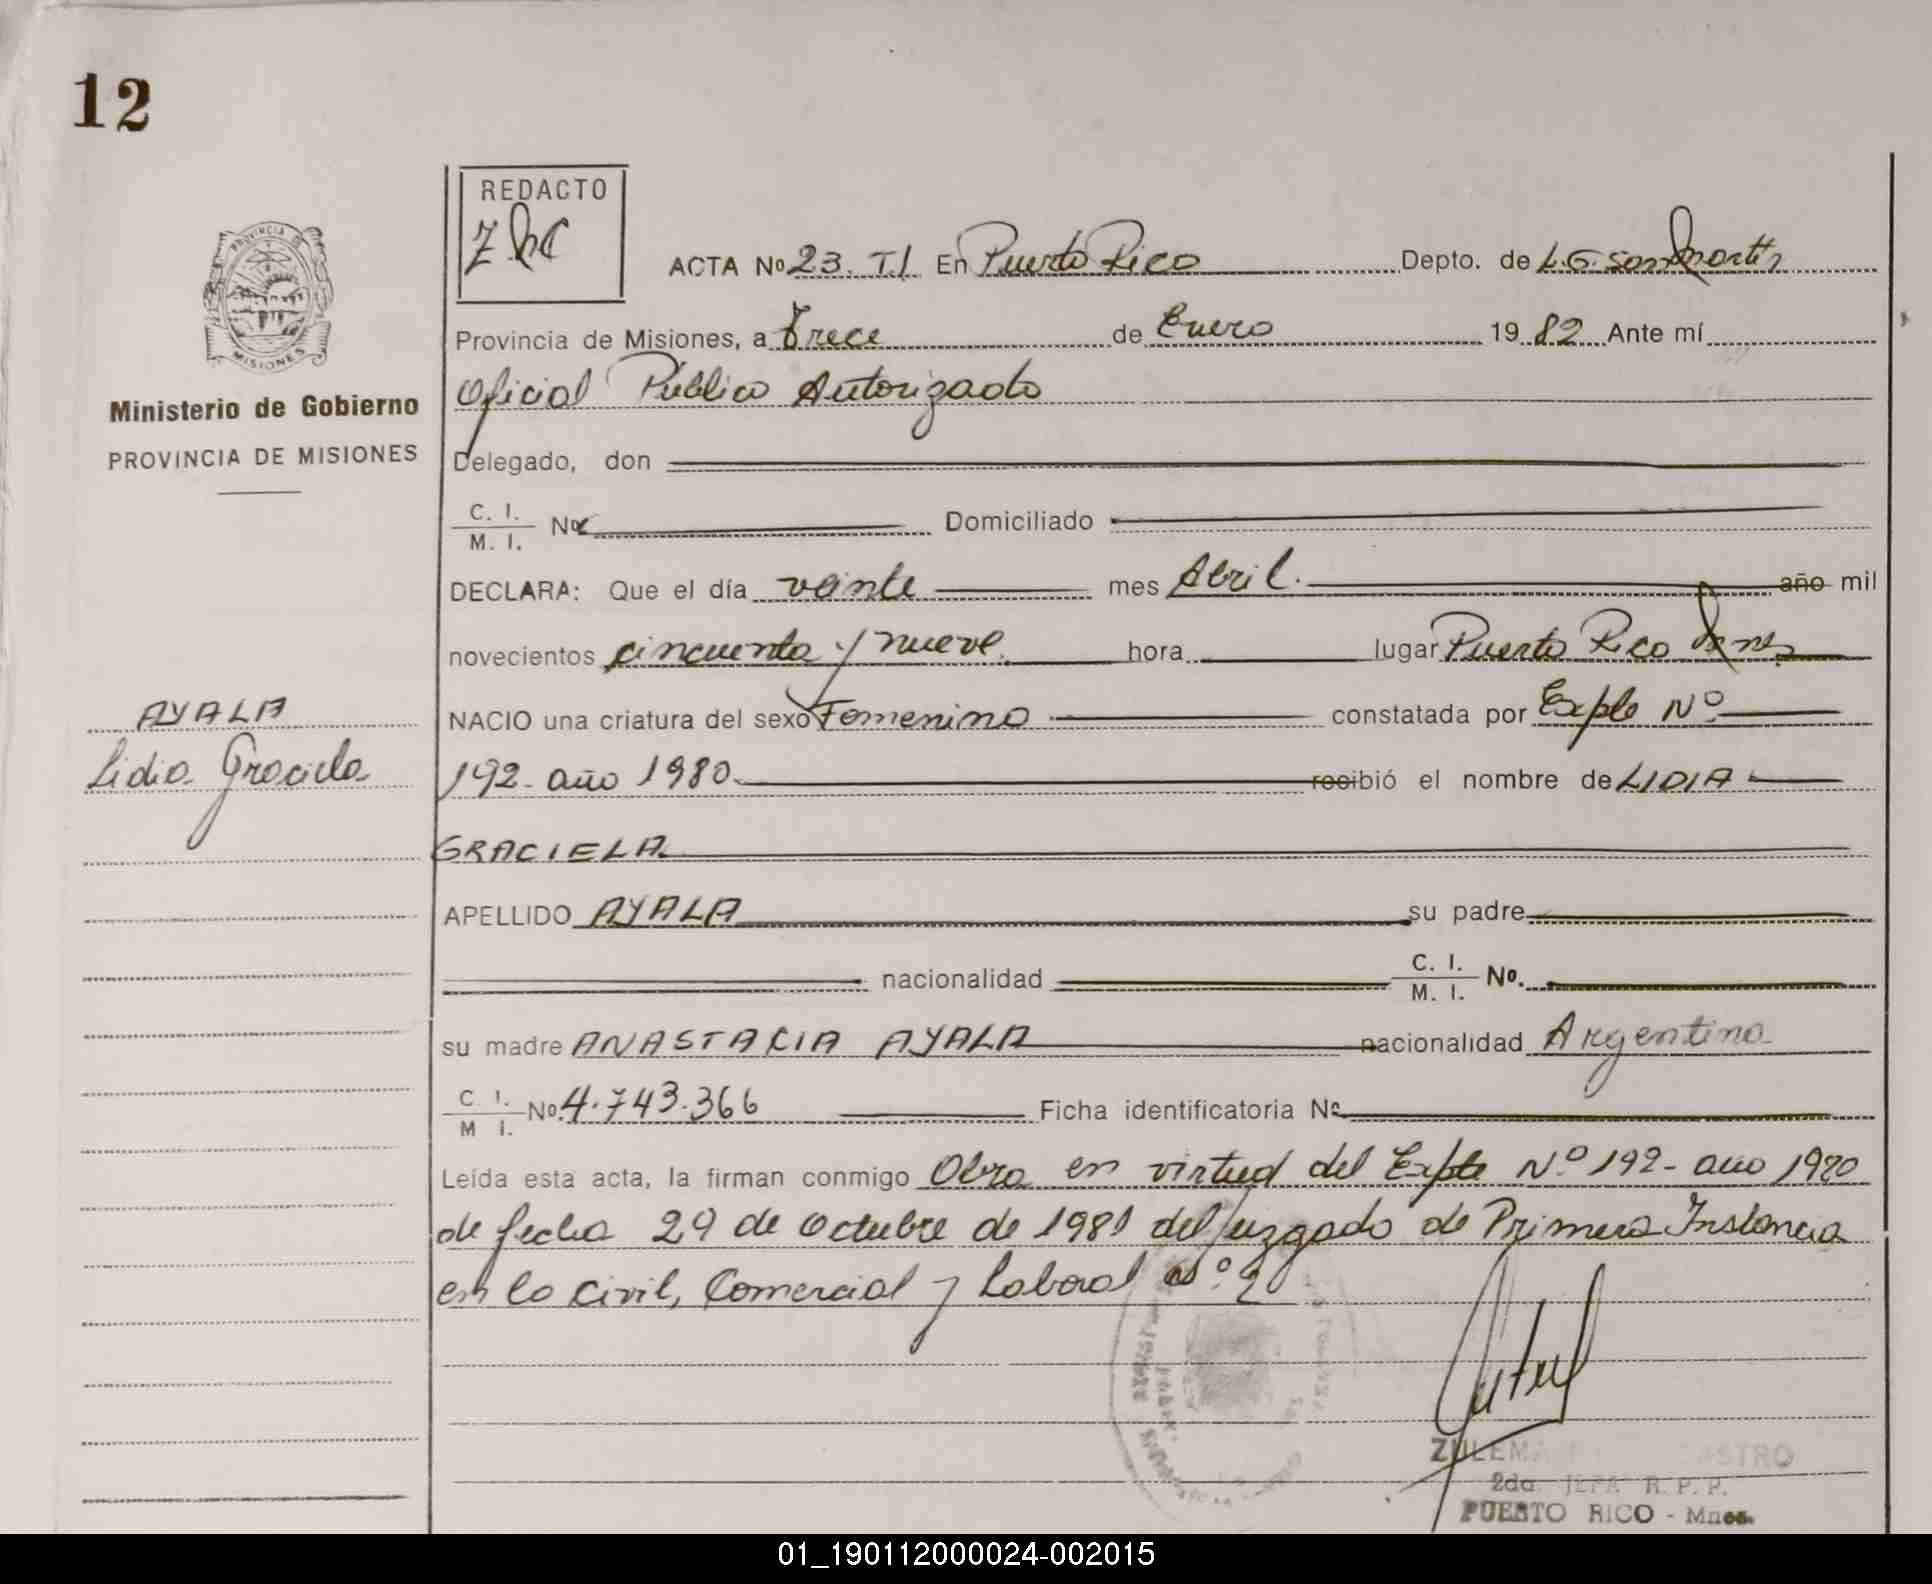 12
REDACTO
PROVINCIA DE
MISIONES
ACTA No 23. T.I En Puerto Rico Depto. de L.G. San Martín
Provincia de Misiones, a Trece de Enero 1982 Ante mí
Ministerio de Gobierno
Oficial Público Autorizado
PROVINCIA DE MISIONES
Delegado, don
C. I.
M. I. No Domiciliado
DECLARA: Que el día veinte mes Abril. año mil
novecientos cincuenta y nueve. hora lugar Puerto Rico Mnes
AYALA
NACIO una criatura del sexo Femenino constatada por Expte Nº
Lidia Graciela
192- año 1980 recibió el nombre de LIDIA
GRACIELA
APELLIDO AYALA su padre
nacionalidad C. I.
M. I. No.
su madre ANASTACIA AYALA nacionalidad Argentina
C. I.
M I. No 4.743.366 Ficha identificatoria No
Leída esta acta, la firman conmigo Obra en virtud del Expte Nº 192- año 1980
de fecha 29 de Octubre de 1981 del Juzgado de Primera Instancia
en lo Civil, Comercial y Laboral nº 2
ZULEMA
2da JEFA R. P. P.
PUERTO RICO - Mnes.
01_190112000024-002015